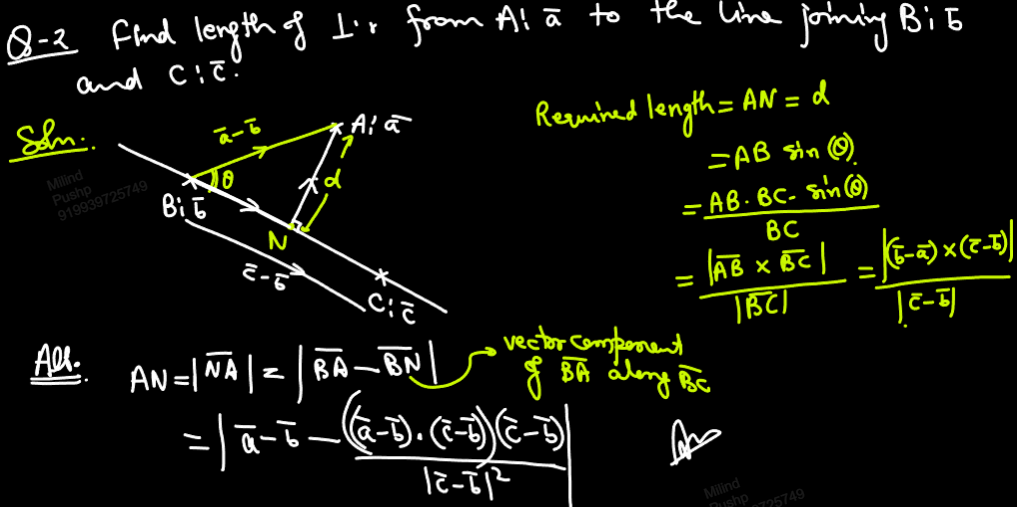 Q-2 Find length of ⊥'r from A: ā to the line joining B: b̄
and C: c̄.
Soln.
ā-b̄
A: ā
θ
d
B: b̄
N
c̄-b̄
C: c̄
Required length = AN = d
= AB sin(θ)
= AB. BC. sin(θ) / BC
= |A̅B̅ × B̅C̅| / |B̅C̅| = |(b̄-ā)×(c̄-b̄)| / |c̄-b̄|
Alt. AN = |N̅A̅| = |B̅A̅ - B̅N̅|
vector component
of B̅A̅ along B̅C̅
= |ā-b̄ - ((ā-b̄).(c̄-b̄))(c̄-b̄) / |c̄-b̄|²|
Ans
Milind
Pushp
919939725749
Milind
Pushp